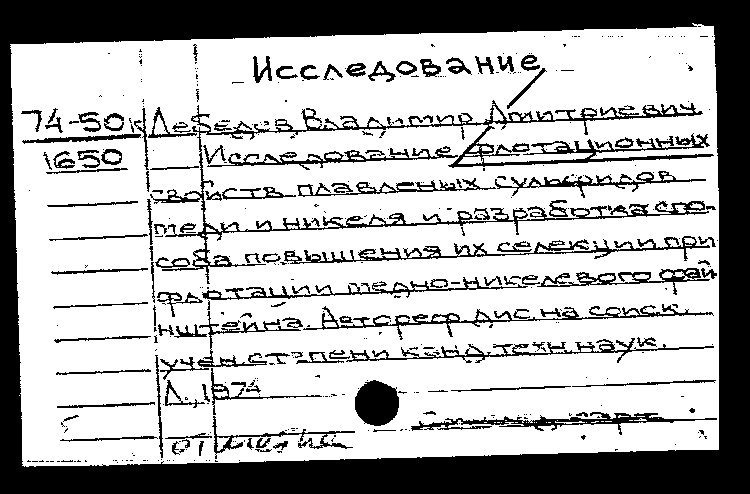 Исследование
74-50к Лебедев Владимир Дмитриевич
1650 Исследование флотационных
свойств плавленых сульфидов
меди и никеля и разработка спо-
соба повышения их селекции при
флотации медно-никелевого фай-
нштейна. Автореф. дис. на соиск.
учен. степени канд. техн. наук.
Л., 1974